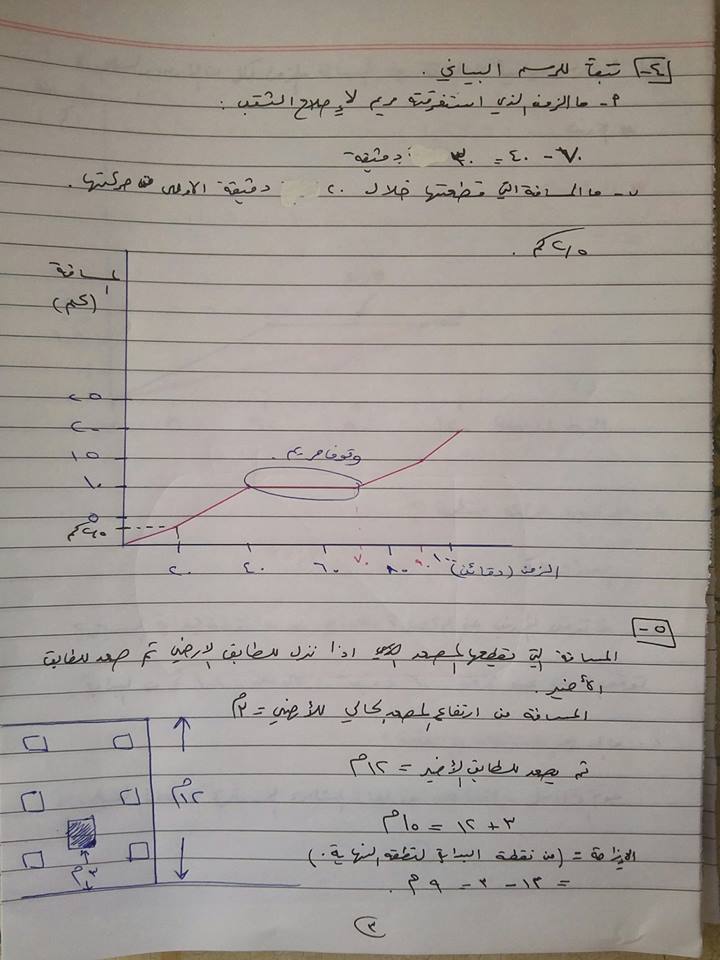 ٤- تبعاً للرسم البياني .
٩- ما الزمن الذي استغرقته مريم لإصلاح الثقب :
٧٠ - ٤٠ = ٣٠ دقيقة
ب- ما المسافة التي قطعتها خلال ٢٠ دقيقة الاولى من حركتها .
٢,٥ كم .
المسافة
(كم)
٢٥
٢٠
١٥
١٠
٥
٢,٥ كم
وقوف مريم .
٢٠ ٤٠ ٦٠ ٧٠ ٨٠ ٩٠ ١٠٠ الزمن (دقائق)
٥-
المسافة التي تقطعها المصعد اذا نزل للطابق الارضي ثم صعد للطابق
الأخير .
المسافة من ارتفاع المصعد الحالي للأرضي = ٣م
ثم يصعد للطابق الأخير = ١٢م
٣ + ١٢ = ١٥م
الإزاحة = (من نقطة البداية لنقطة النهاية .)
= ١٢ - ٣ = ٩م .
١٢م
٣م
٣